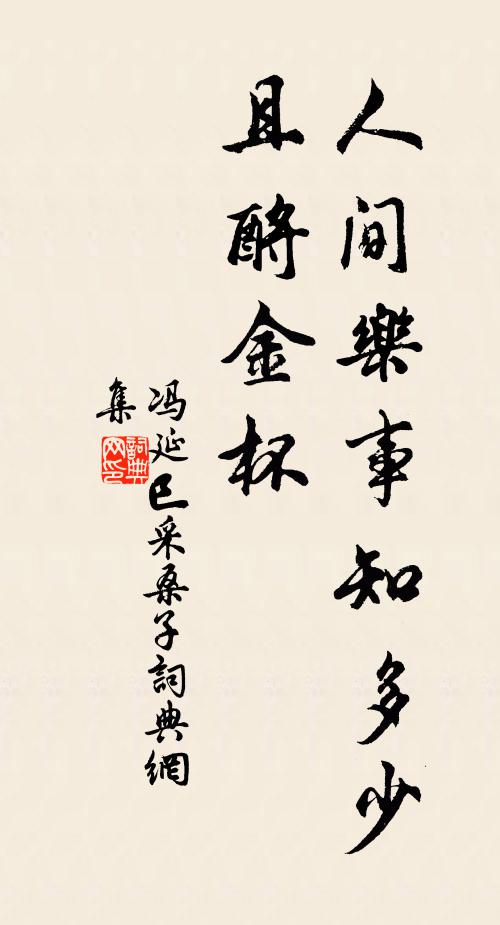 人间樂事知多少
且酹金杯
冯延巳采桑子詞典網
集
詞典網印